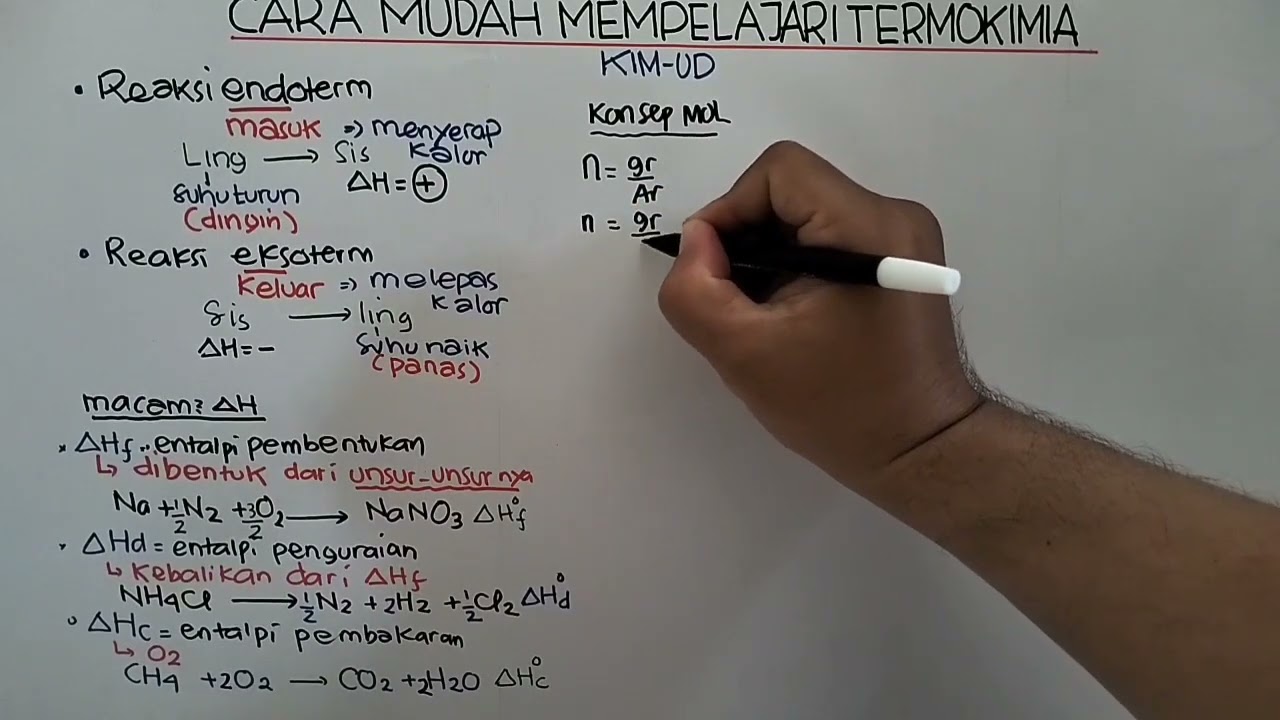 CARA MUDAH MEMPELAJARI TERMOKIMIA
KIM-UD
• Reaksi endoterm
masuk => menyerap kalor
Ling → Sis
suhu turun ΔH = +
(dingin)
• Reaksi eksoterm
Keluar => melepas kalor
Sis → ling
ΔH = - suhu naik
(panas)
macam² ΔH
* ΔHf.. entalpi pembentukan
↳ dibentuk dari unsur-unsurnya
Na + 1/2 N2 + 3/2 O2 → NaNO3 ΔH°f
* ΔHd = entalpi penguraian
↳ Kebalikan dari ΔHf
NH4Cl → 1/2 N2 + 2H2 + 1/2 Cl2 ΔH°d
° ΔHc = entalpi pembakaran
↳ O2
CH4 + 2O2 → CO2 + 2H2O ΔH°c
Konsep Mol
n = gr/Ar
n = gr